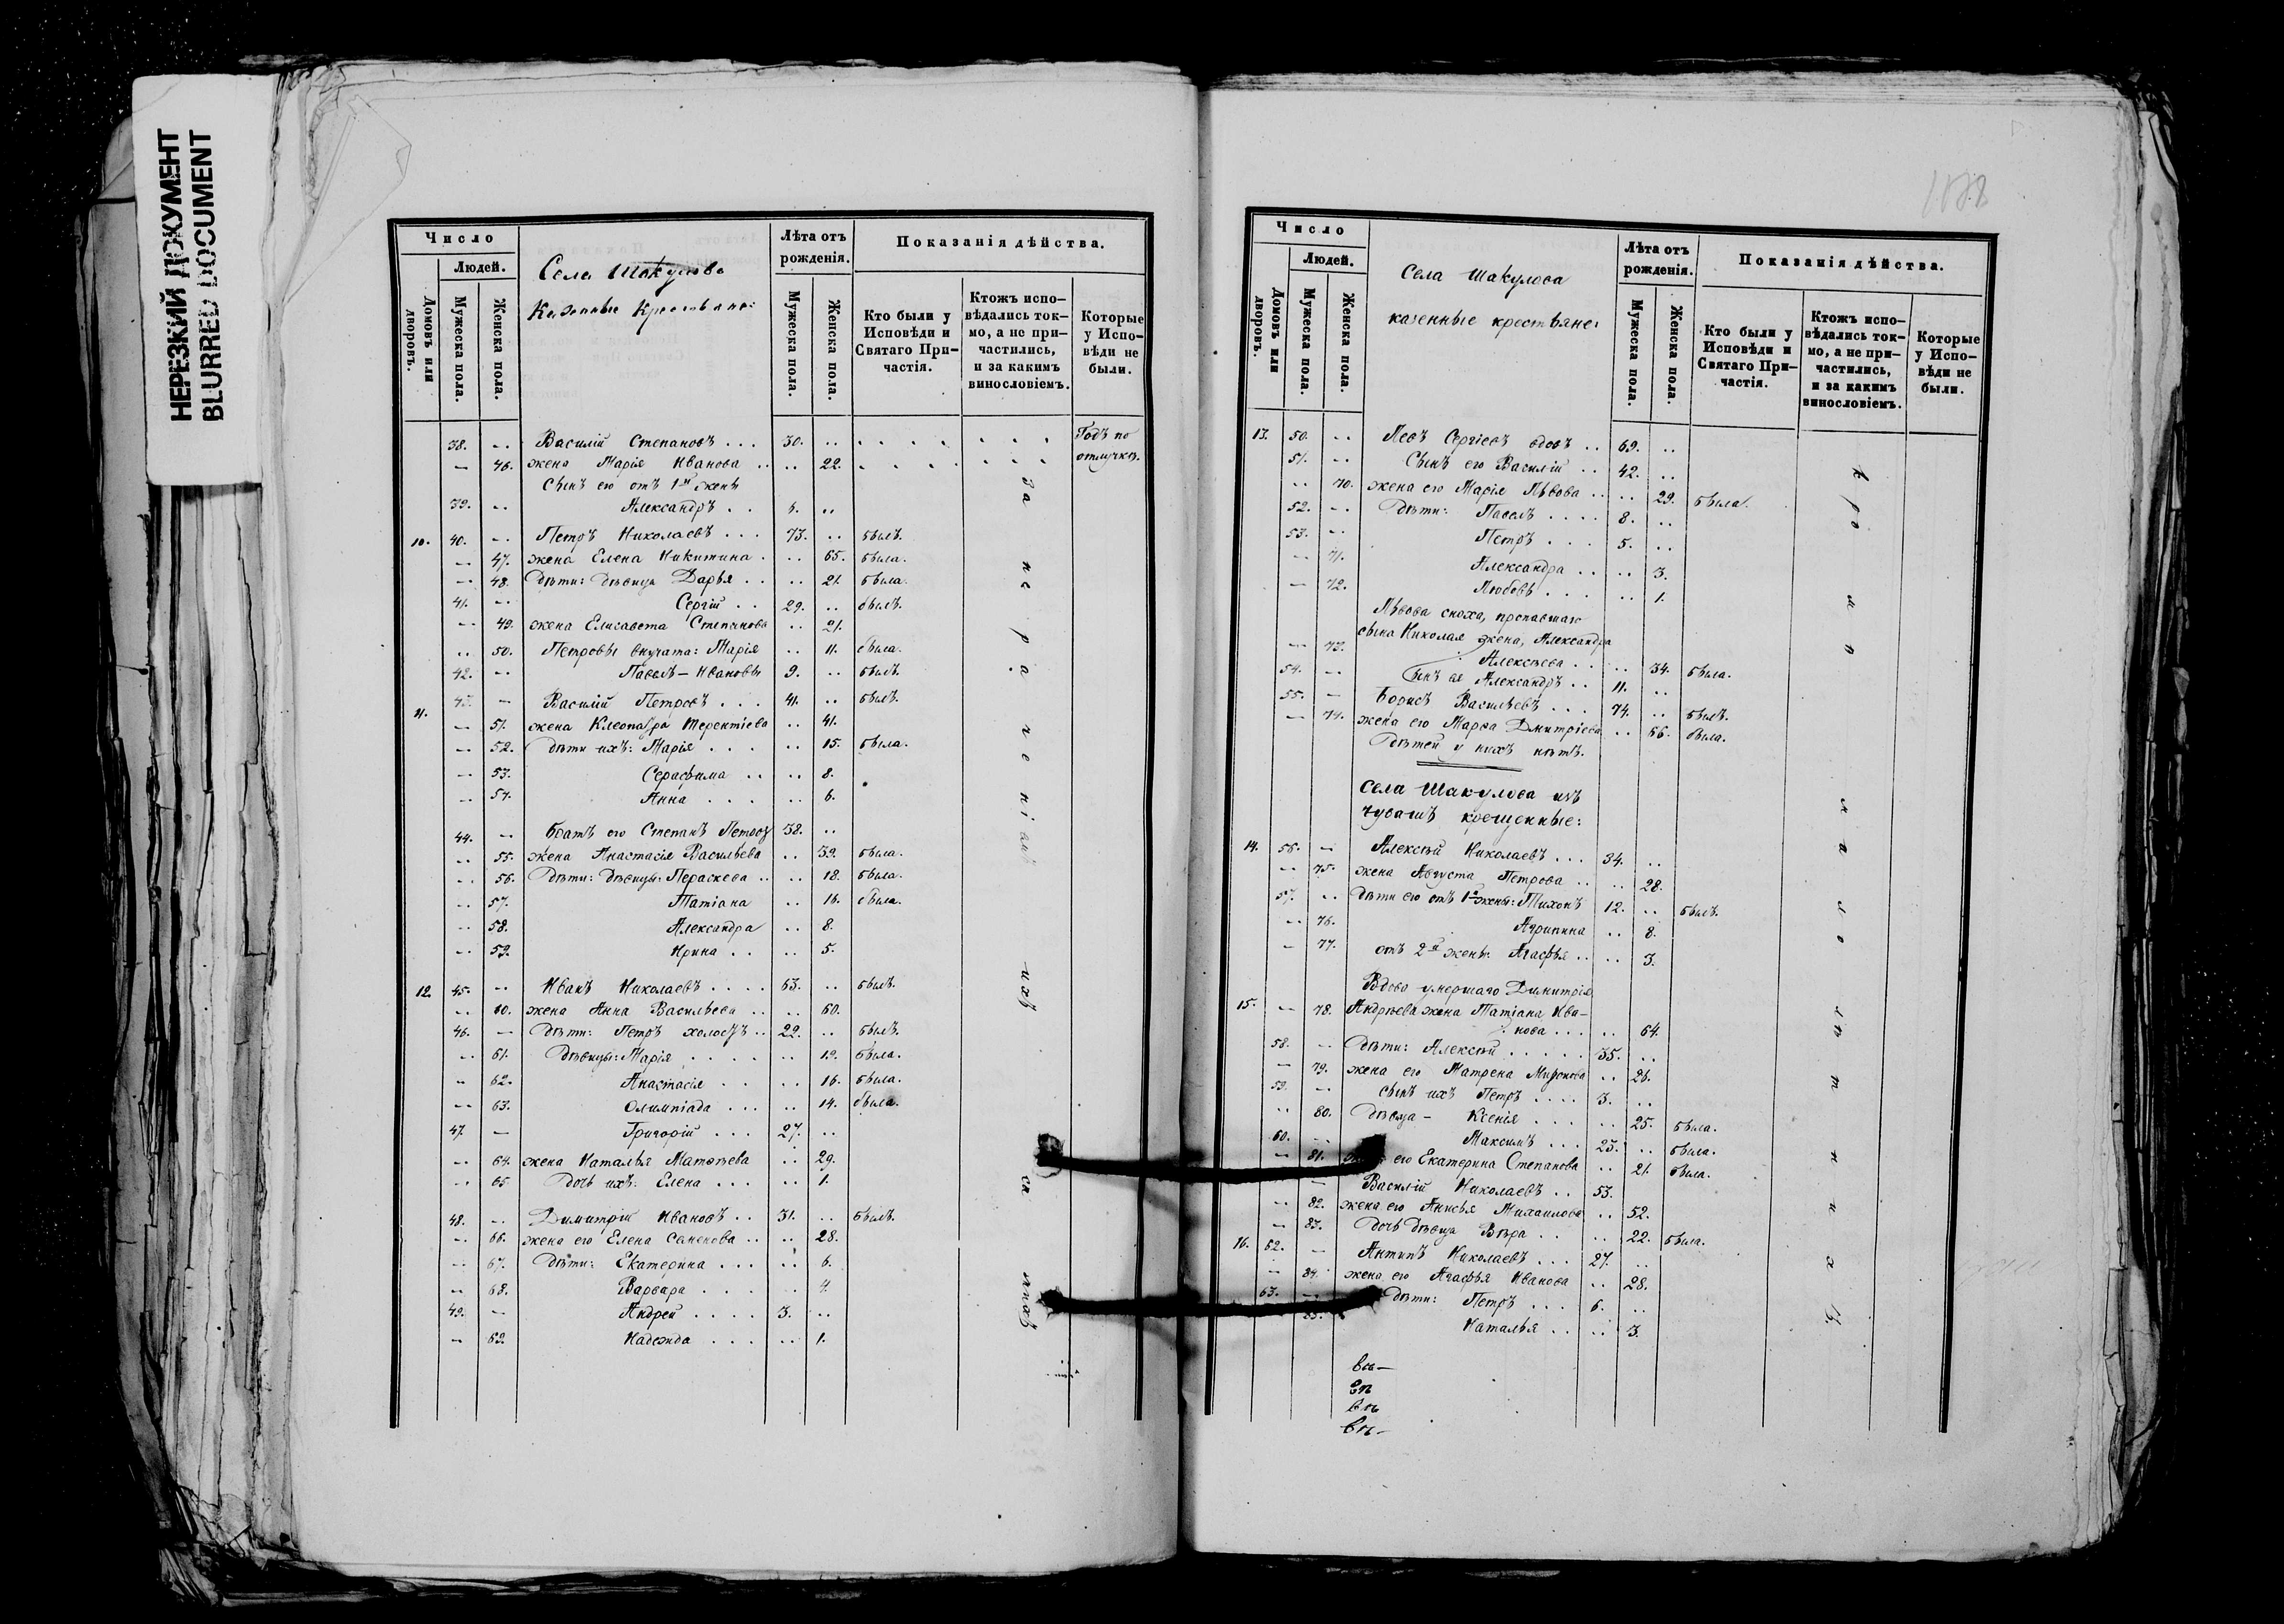 НЕРЕЗКИЙ ДОКУМЕНТ
BLURRED DOCUMENT
Число
Людей.
Домовъ или дворовъ.
Мужеска пола.
Женска пола.
Села Шакулова
Казенные Крестьяне:
Лѣта отъ рожденія.
Мужеска пола.
Женска пола.
Показанія дѣйства.
Кто были у Исповѣди и Святаго При-
частія.
Ктожъ испо-
вѣдались ток-
мо, а не при-
частились,
и за какимъ
винословіемъ.
Которые
у Испо-
вѣди не
были.
38. -- Василій Степановъ . . . 30. ..
Годъ по
-- 46. жена Марія Иванова .. .. 22.
отлучкѣ.
Сынъ его отъ 1й жены
39. -- Александръ . . ..
10. 40. -- Петръ Николаевъ . . . 73. .. былъ.
-- 47. жена Елена Никитина . .. 65. была.
-- 48. Дѣти: Дѣвица Дарья . . .. 21. была.
41. -- Сергій . . 29. .. былъ.
-- 49. жена Елисавета Степанова .. 21.
.. 50. Петровы внучата: Марія .. 11. была.
42. -- Павелъ – Ивановы 9. .. былъ.
11. 43. – Василій Петровъ . . . 41. .. былъ.
-- 51. жена Клеопатра Терентіева .. 41.
-- 52. Дѣти ихъ: Марія . . . .. 15. была.
-- 53. Серафима .. .. 8.
-- 54. Анна . . . .. 6.
44. -- Братъ его Степанъ Петровъ 38. ..
.. 55. жена Анастасія Васильева .. 39. была.
.. 56. Дѣти: Дѣвицы: Пераскева .. .. 18. была.
.. 57. Татіана .. 16. была.
-- 58. Александра .. 8.
-- 59. Ирина . . .. 5.
12. 45. -- Иванъ Николаевъ . . . . 63. .. былъ.
.. 60. жена Анна Васильева .. .. 60.
46. – Дѣти: Петръ холостъ .. 22. .. былъ.
-- 61. Дѣвицы: Марія . . . . .. 19. была.
.. 62. Анастасія . . .. 16. была.
-- 63. Олимпіада . . . .. 14. была.
47. – Григорій . . . 27. ..
.. 64. жена Наталья Матвѣева .. 29.
.. 65 Дочь ихъ: Елена . . . .. 1.
48. -- Димитрій Ивановъ . . 31. .. былъ.
-- 66. жена его Елена Семенова . . .. 28.
-- 67. Дѣти: Екатерина . . . .. 6.
-- 68. Варвара . . . .. 4.
49. -- Андрей . . . . 3. ..
-- 69. Надежда . . . .. 1.
Число
Людей.
Домовъ или дворовъ.
Мужеска пола.
Женска пола.
Села Шакулова
казенные крестьяне:
Лѣта отъ рожденія.
Мужеска пола.
Женска пола.
Показанія дѣйства.
Кто были у
Исповѣди и
Святаго При-
частія.
Ктожъ испо-
вѣдались ток-
мо, а не при-
частились,
и за какимъ
винословіемъ.
Которые
у Испо-
вѣди не
были.
13. 50. -- Левъ Сергіевъ вдовъ . . 69. ..
51. -- Сынъ его Василій . . 42. ..
.. 70. жена его Марія Львова . . .. 29. была.
52. -- Дѣти: Павелъ . . . . 8. ..
53. -- Петръ . . . 5. ..
-- 71. Александра . . .. 3.
-- 72. Любовь . . . .. 1.
Львова сноха, пропавшаго
сына Николая жена, Александра
-- 73. Алексѣева . . .. 34. была.
54. -- Сынъ ея Александръ . . 11. ..
55. – Борисъ Васильевъ . . . 74. .. былъ.
-- 74. жена его Марѳа Дмитріева .. 66. была.
Дѣтей у нихъ нѣтъ.
Села Шакулова изъ
чувашъ крещенные:
14. 56. – Алексѣй Николаевъ . . . 34. ..
-- 75. жена Августа Петрова . . .. 28.
57. .. Дѣти его отъ 1й жены: Тихонъ 12. .. былъ.
-- 76. Агрипина .. 8.
-- 77. отъ 2й жены: Агафья . . .. 3.
Вдова умершаго Димитрія
15. -- 78. Андрѣева жена Татіана Ива-
нова . . . .. 64.
58. -- Дѣти: Алексѣй . . . . . 35. ..
-- 79. жена его Матрена Миронова .. 26.
59. -- сынъ ихъ Петръ . . . . 3. ..
.. 80. Дѣвица – Ксенія . . . .. 25. была.
60. -- Максимъ . . . 23. .. была.
-- 81. его Екатерина Степанова .. 21. была.
– Василій Николаевъ . . 53.
-- 82. жена его Анисья Михаилова .. 52.
-- 83. Дочь дѣвица Вѣра . . .. 22. была.
16. 62. – Антипъ Николаевъ . . . 27. ..
-- 84. жена его Агафья Иванова .. 28.
63. -- Дѣти: Петръ . . . 6. ..
85. Наталья . . .. 3.